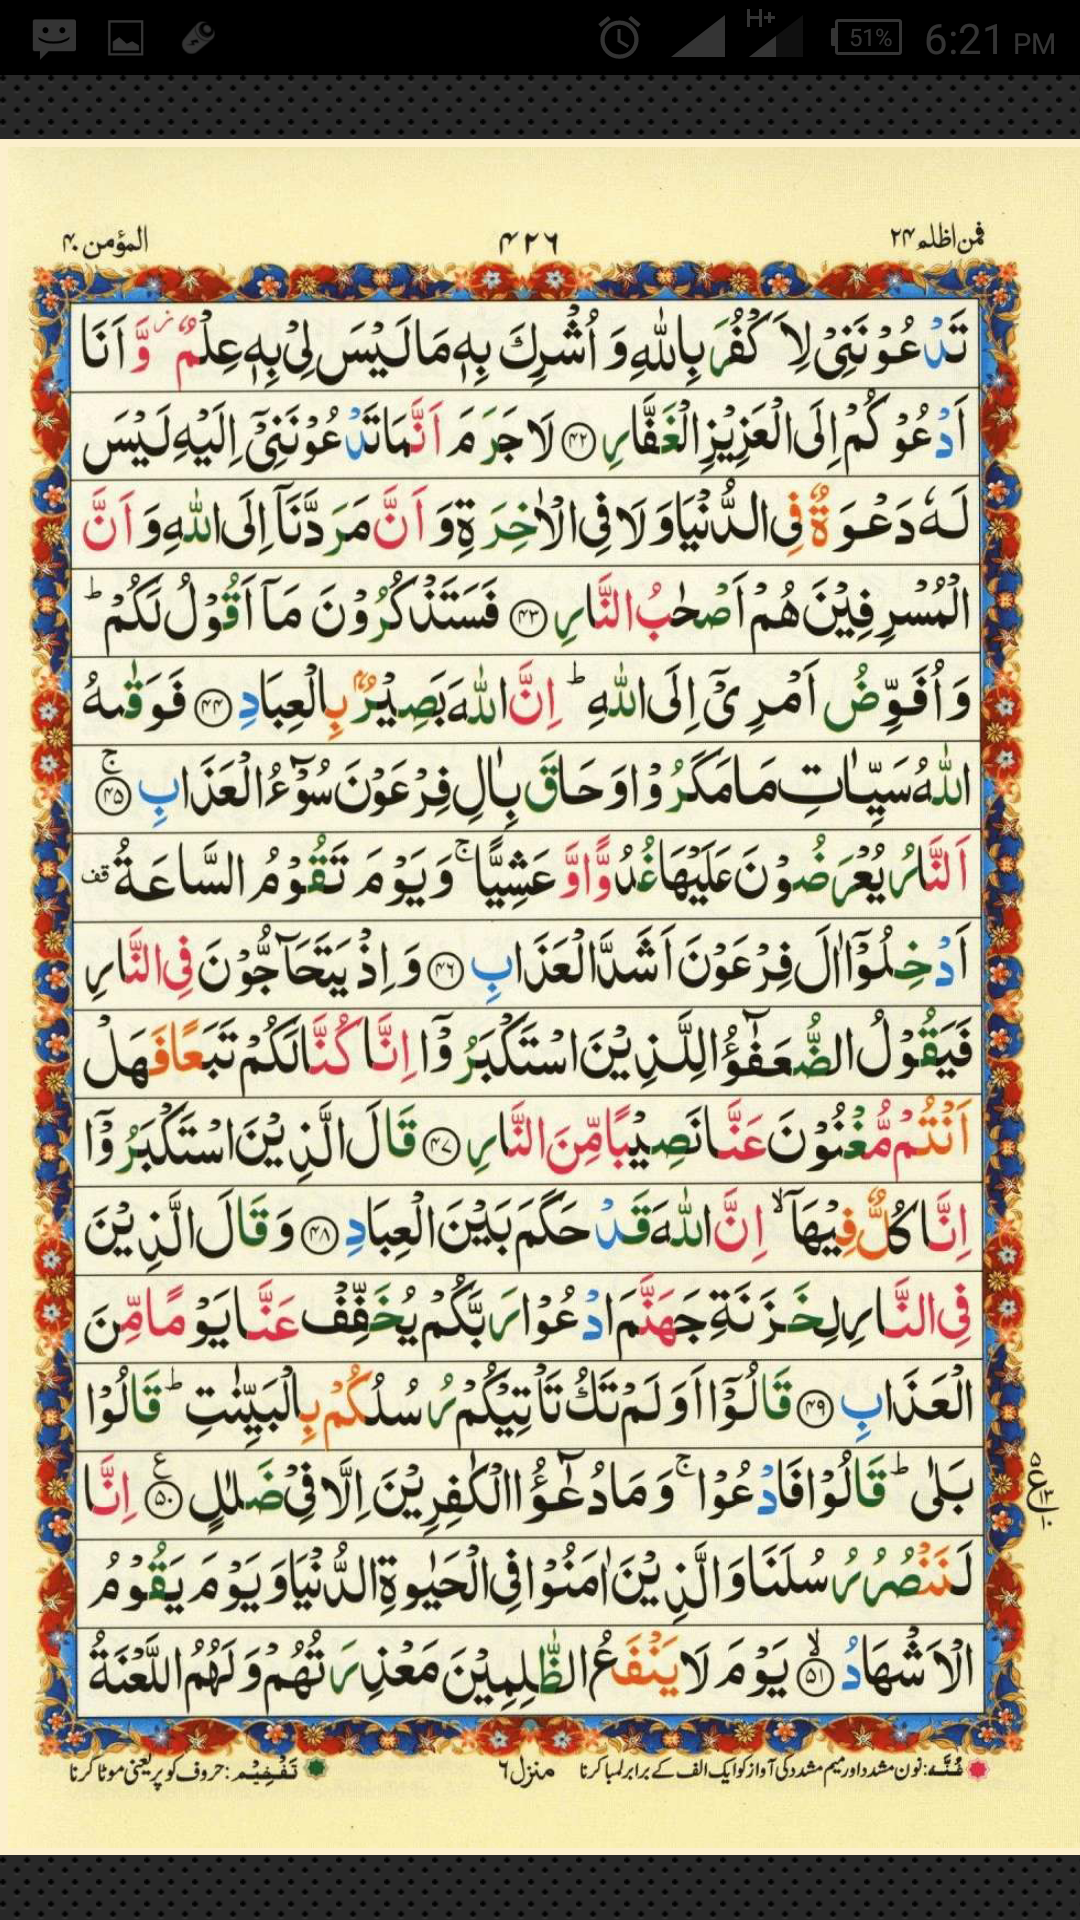 H+
51%
6:21 PM
فمن اظلم ۲۴
۴۲۶
المؤمن ۴۰
تَدْعُوْنَنِیْ لِاَكْفُرَ بِاللّٰهِ وَ اُشْرِكَ بِهٖ مَا لَیْسَ لِیْ بِهٖ عِلْمٌ ز وَّ اَنَا
اَدْعُوْكُمْ اِلَى الْعَزِیْزِ الْغَفَّارِ ﴿۴۲﴾ لَا جَرَمَ اَنَّمَا تَدْعُوْنَنِیْۤ اِلَیْهِ لَیْسَ
لَهٗ دَعْوَةٌ فِی الدُّنْیَا وَ لَا فِی الْاٰخِرَةِ وَ اَنَّ مَرَدَّنَاۤ اِلَى اللّٰهِ وَ اَنَّ
الْمُسْرِفِیْنَ هُمْ اَصْحٰبُ النَّارِ ﴿۴۳﴾ فَسَتَذْكُرُوْنَ مَاۤ اَقُوْلُ لَكُمْ ؕ
وَ اُفَوِّضُ اَمْرِیْۤ اِلَى اللّٰهِ ؕ اِنَّ اللّٰهَ بَصِیْرٌۢ بِالْعِبَادِ ﴿۴۴﴾ فَوَقٰىهُ
اللّٰهُ سَیِّاٰتِ مَا مَكَرُوْا وَ حَاقَ بِاٰلِ فِرْعَوْنَ سُوْٓءُ الْعَذَابِ ۚ﴿۴۵﴾
اَلنَّارُ یُعْرَضُوْنَ عَلَیْهَا غُدُوًّا وَّ عَشِیًّا ۚ وَ یَوْمَ تَقُوْمُ السَّاعَةُ قف
اَدْخِلُوْۤا اٰلَ فِرْعَوْنَ اَشَدَّ الْعَذَابِ ﴿۴۶﴾ وَ اِذْ یَتَحَآجُّوْنَ فِی النَّارِ
فَیَقُوْلُ الضُّعَفٰٓؤُا لِلَّذِیْنَ اسْتَكْبَرُوْۤا اِنَّا كُنَّا لَكُمْ تَبَعًا فَهَلْ
اَنْتُمْ مُّغْنُوْنَ عَنَّا نَصِیْبًا مِّنَ النَّارِ ﴿۴۷﴾ قَالَ الَّذِیْنَ اسْتَكْبَرُوْۤا
اِنَّا كُلٌّ فِیْهَاۤ ۙ اِنَّ اللّٰهَ قَدْ حَكَمَ بَیْنَ الْعِبَادِ ﴿۴۸﴾ وَ قَالَ الَّذِیْنَ
فِی النَّارِ لِخَزَنَةِ جَهَنَّمَ ادْعُوْا رَبَّكُمْ یُخَفِّفْ عَنَّا یَوْمًا مِّنَ
الْعَذَابِ ﴿۴۹﴾ قَالُوْۤا اَوَ لَمْ تَكُ تَاْتِیْكُمْ رُسُلُكُمْ بِالْبَیِّنٰتِ ؕ قَالُوْا
بَلٰى ؕ قَالُوْا فَادْعُوْا ۚ وَ مَا دُعٰٓؤُا الْكٰفِرِیْنَ اِلَّا فِیْ ضَلٰلٍ ﴿۵۰﴾ ع اِنَّا
لَنَنْصُرُ رُسُلَنَا وَ الَّذِیْنَ اٰمَنُوْا فِی الْحَیٰوةِ الدُّنْیَا وَ یَوْمَ یَقُوْمُ
الْاَشْهَادُ ۙ﴿۵۱﴾ یَوْمَ لَا یَنْفَعُ الظّٰلِمِیْنَ مَعْذِرَتُهُمْ وَ لَهُمُ اللَّعْنَةُ
۵ ع ۱۳ ۱۰
غُنَّه: نون مشدد اور میم مشدد کی آواز کو ایک الف کے برابر لمبا کرنا
منزل ۶
تَفْخِیْم: حروف کو پر یعنی موٹا کرنا